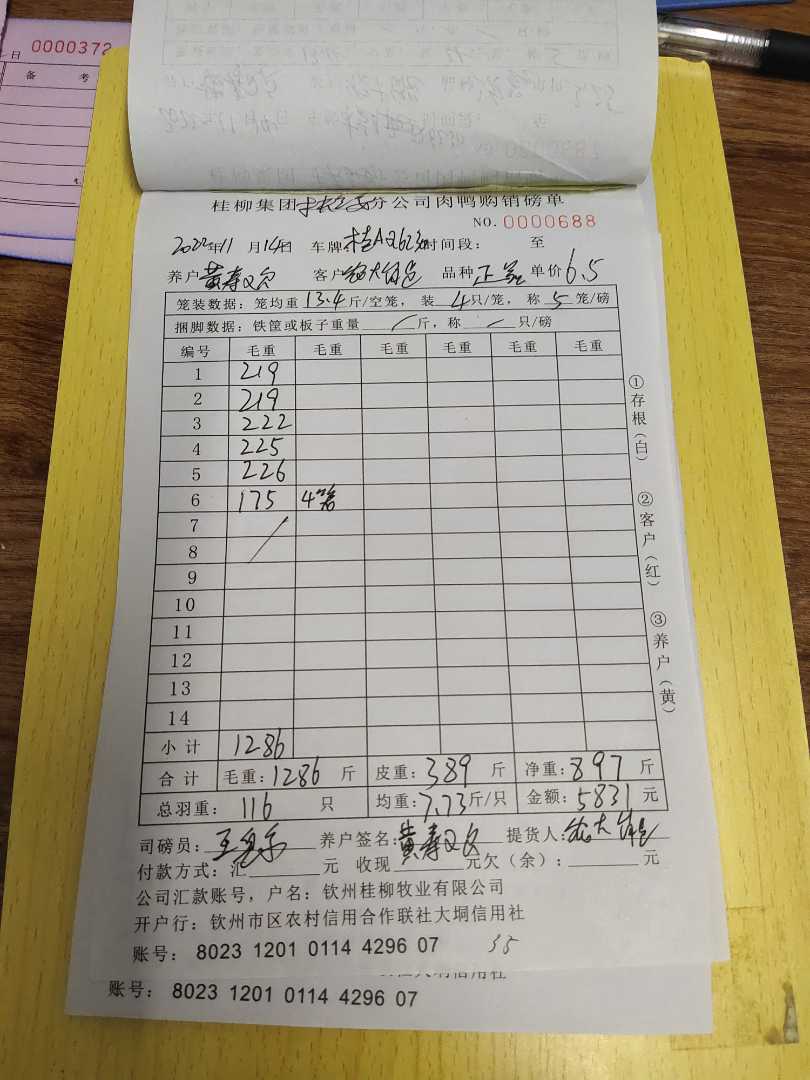 日 0000372
备 考
桂柳集团 分公司肉鸭购销磅单
NO. 0000688
2022年11月14日 车牌: 时间段: 至
养户 黄寿 客户 品种 正 单价6.5
笼装数据: 笼均重13.4斤/空笼, 装4只/笼, 称5笼/磅
捆脚数据: 铁筐或板子重量/斤, 称/只/磅
编号 毛重 毛重 毛重 毛重 毛重 毛重
1 219
2 219
3 222
4 225
5 226
6 175 4笼
7
8
9
10
11
12
13
14
小计 1286
合计 毛重:1286斤 皮重:389斤 净重:897斤
总羽重: 116只 均重:7.73斤/只 金额:5831元
司磅员: 养户签名:黄寿 提货人:
付款方式: 汇 元 收现 元欠(余): 元
公司汇款账号, 户名: 钦州桂柳牧业有限公司
开户行: 钦州市区农村信用合作联社大垌信用社
账号: 8023 1201 0114 4296 07
账号: 8023 1201 0114 4296 07
①存根(白)
②客户(红)
③养户(黄)